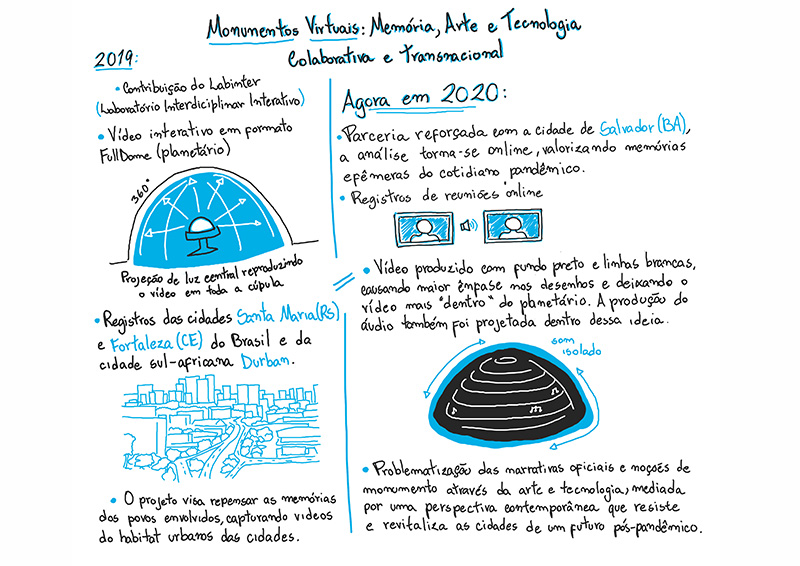 Monumentos Virtuais: Memória, Arte e Tecnologia
Colaborativa e Transnacional
2019:
• Contribuição do Labinter
(Laboratório Interdiciplinar Interativo)
• Vídeo interativo em formato
FullDome (planetário)
360°
Projeção de luz central reproduzindo
o vídeo em toda a cúpula
• Registros das cidades Santa Maria(RS)
e Fortaleza (CE) do Brasil e da
cidade sul-africana Durban.
• O projeto visa repensar as memórias
dos povos envolvidos, capturando videos
do habitat urbanos das cidades.
Agora em 2020:
• Parceria reforsada com a cidade de Salvador (BA),
a análise torna-se online, valorizando memórias
efêmeras do cotidiano pandêmico.
• Registros de reuniões online
• Vídeo produzido com fundo preto e linhas brancas,
causando maior ênfase nos desenhos e deixando o
vídeo mais "dentro" do planetário. A produção do
áudio também foi projetada dentro dessa ideia.
som
isolado
• Problematização das narrativas oficiais e noções de
monumento através da arte e tecnologia, mediada
por uma perspectiva contemporânea que resiste
e revitaliza as cidades de um futuro pós-pandêmico.